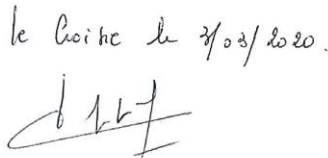 le Croisic le 3/03/2020.